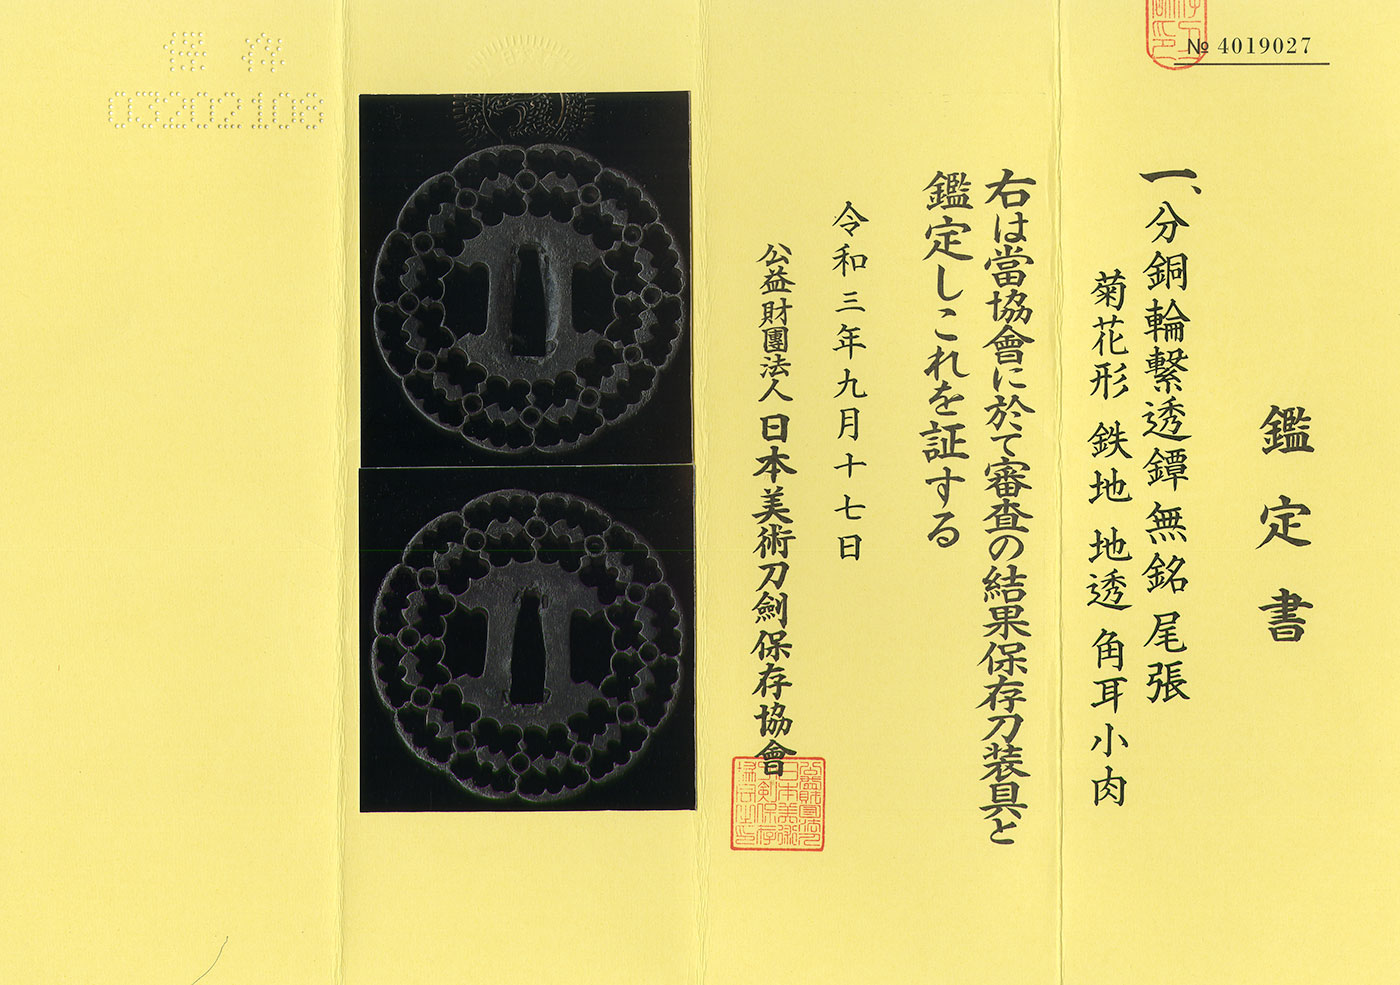 № 4019027
鑑定書
一、分銅輪繋透鐔 無銘 尾張
菊花形 鉄地 地透 角耳小肉
右は當協會に於て審査の結果保存刀装具と
鑑定しこれを証する
令和三年九月十七日
公益財團法人 日本美術刀劍保存協會
保存
03202108